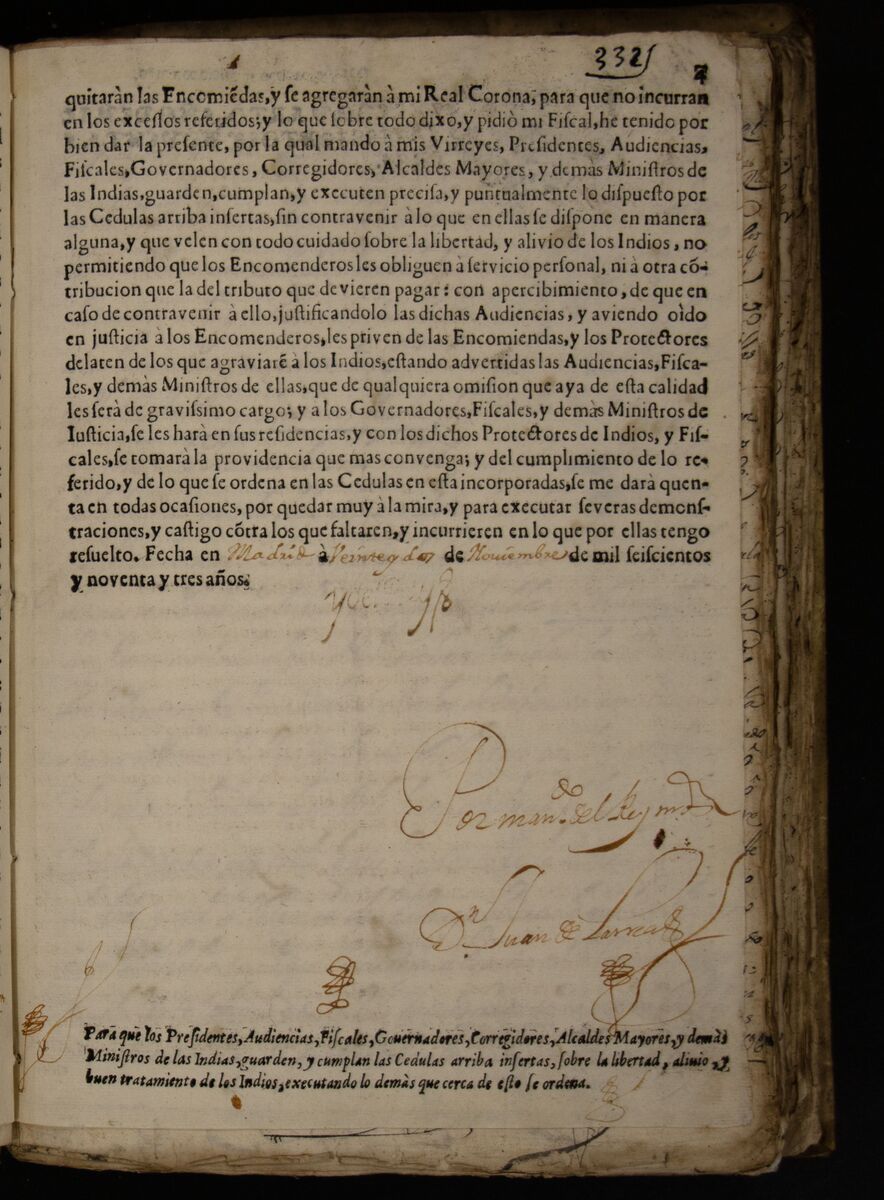 332
quitaràn las Encomiẽdas, y ſe agregaràn à mi Real Corona, para que no incurran
en los exceſſos referidos; y lo que ſobre todo dixo, y pidiò mi Fiſcal, he tenido por
bien dar la preſente, por la qual mando à mis Virreyes, Preſidentes, Audiencias,
Fiſcales, Governadores, Corregidores, Alcaldes Mayores, y demàs Miniſtros de
las Indias, guarden, cumplan, y executen preciſa, y puntualmente lo diſpueſto por
las Cedulas arriba inſertas, ſin contravenir à lo que en ellas ſe diſpone en manera
alguna, y que velen con todo cuidado ſobre la libertad, y alivio de los Indios, no
permitiendo que los Encomenderos les obliguen à ſervicio perſonal, ni à otra cõ-
tribucion que la del tributo que devieren pagar: con apercibimiento, de que en
caſo de contravenir à ello, juſtificandolo las dichas Audiencias, y aviendo oìdo
en juſticia à los Encomenderos, les priven de las Encomiendas, y los Protectores
delaten de los que agraviarẽ à los Indios, eſtando advertidas las Audiencias, Fiſca-
les, y demàs Miniſtros de ellas, que de qualquiera omiſion que aya de eſta calidad
les ſerà de graviſsimo cargo; y a los Governadores, Fiſcales, y demàs Miniſtros de
Iuſticia, ſe les harà en ſus reſidencias, y con los dichos Protectores de Indios, y Fiſ-
cales, ſe tomarà la providencia que mas convenga; y del cumplimiento de lo re-
ferido, y de lo que ſe ordena en las Cedulas en eſta incorporadas, ſe me darà quen-
ta en todas ocaſiones, por quedar muy à la mira, y para executar ſeveras demonſ-
traciones, y caſtigo cõtra los que faltaren, y incurrieren en lo que por ellas tengo
reſuelto. Fecha en Madrid à veinte y dos de Noviembre de mil ſeiſcientos
y noventa y tres años.
Por man.do del Rey
D.n Juan de Larrea
Para que los Preſidentes, Audiencias, Fiſcales, Governadores, Corregidores, Alcaldes Mayores, y demàs
Miniſtros de las Indias, guarden, y cumplan las Cedulas arriba inſertas, ſobre la libertad, alivio, y
buen tratamiento de los Indios, executando lo demàs que cerca de eſto ſe ordena.